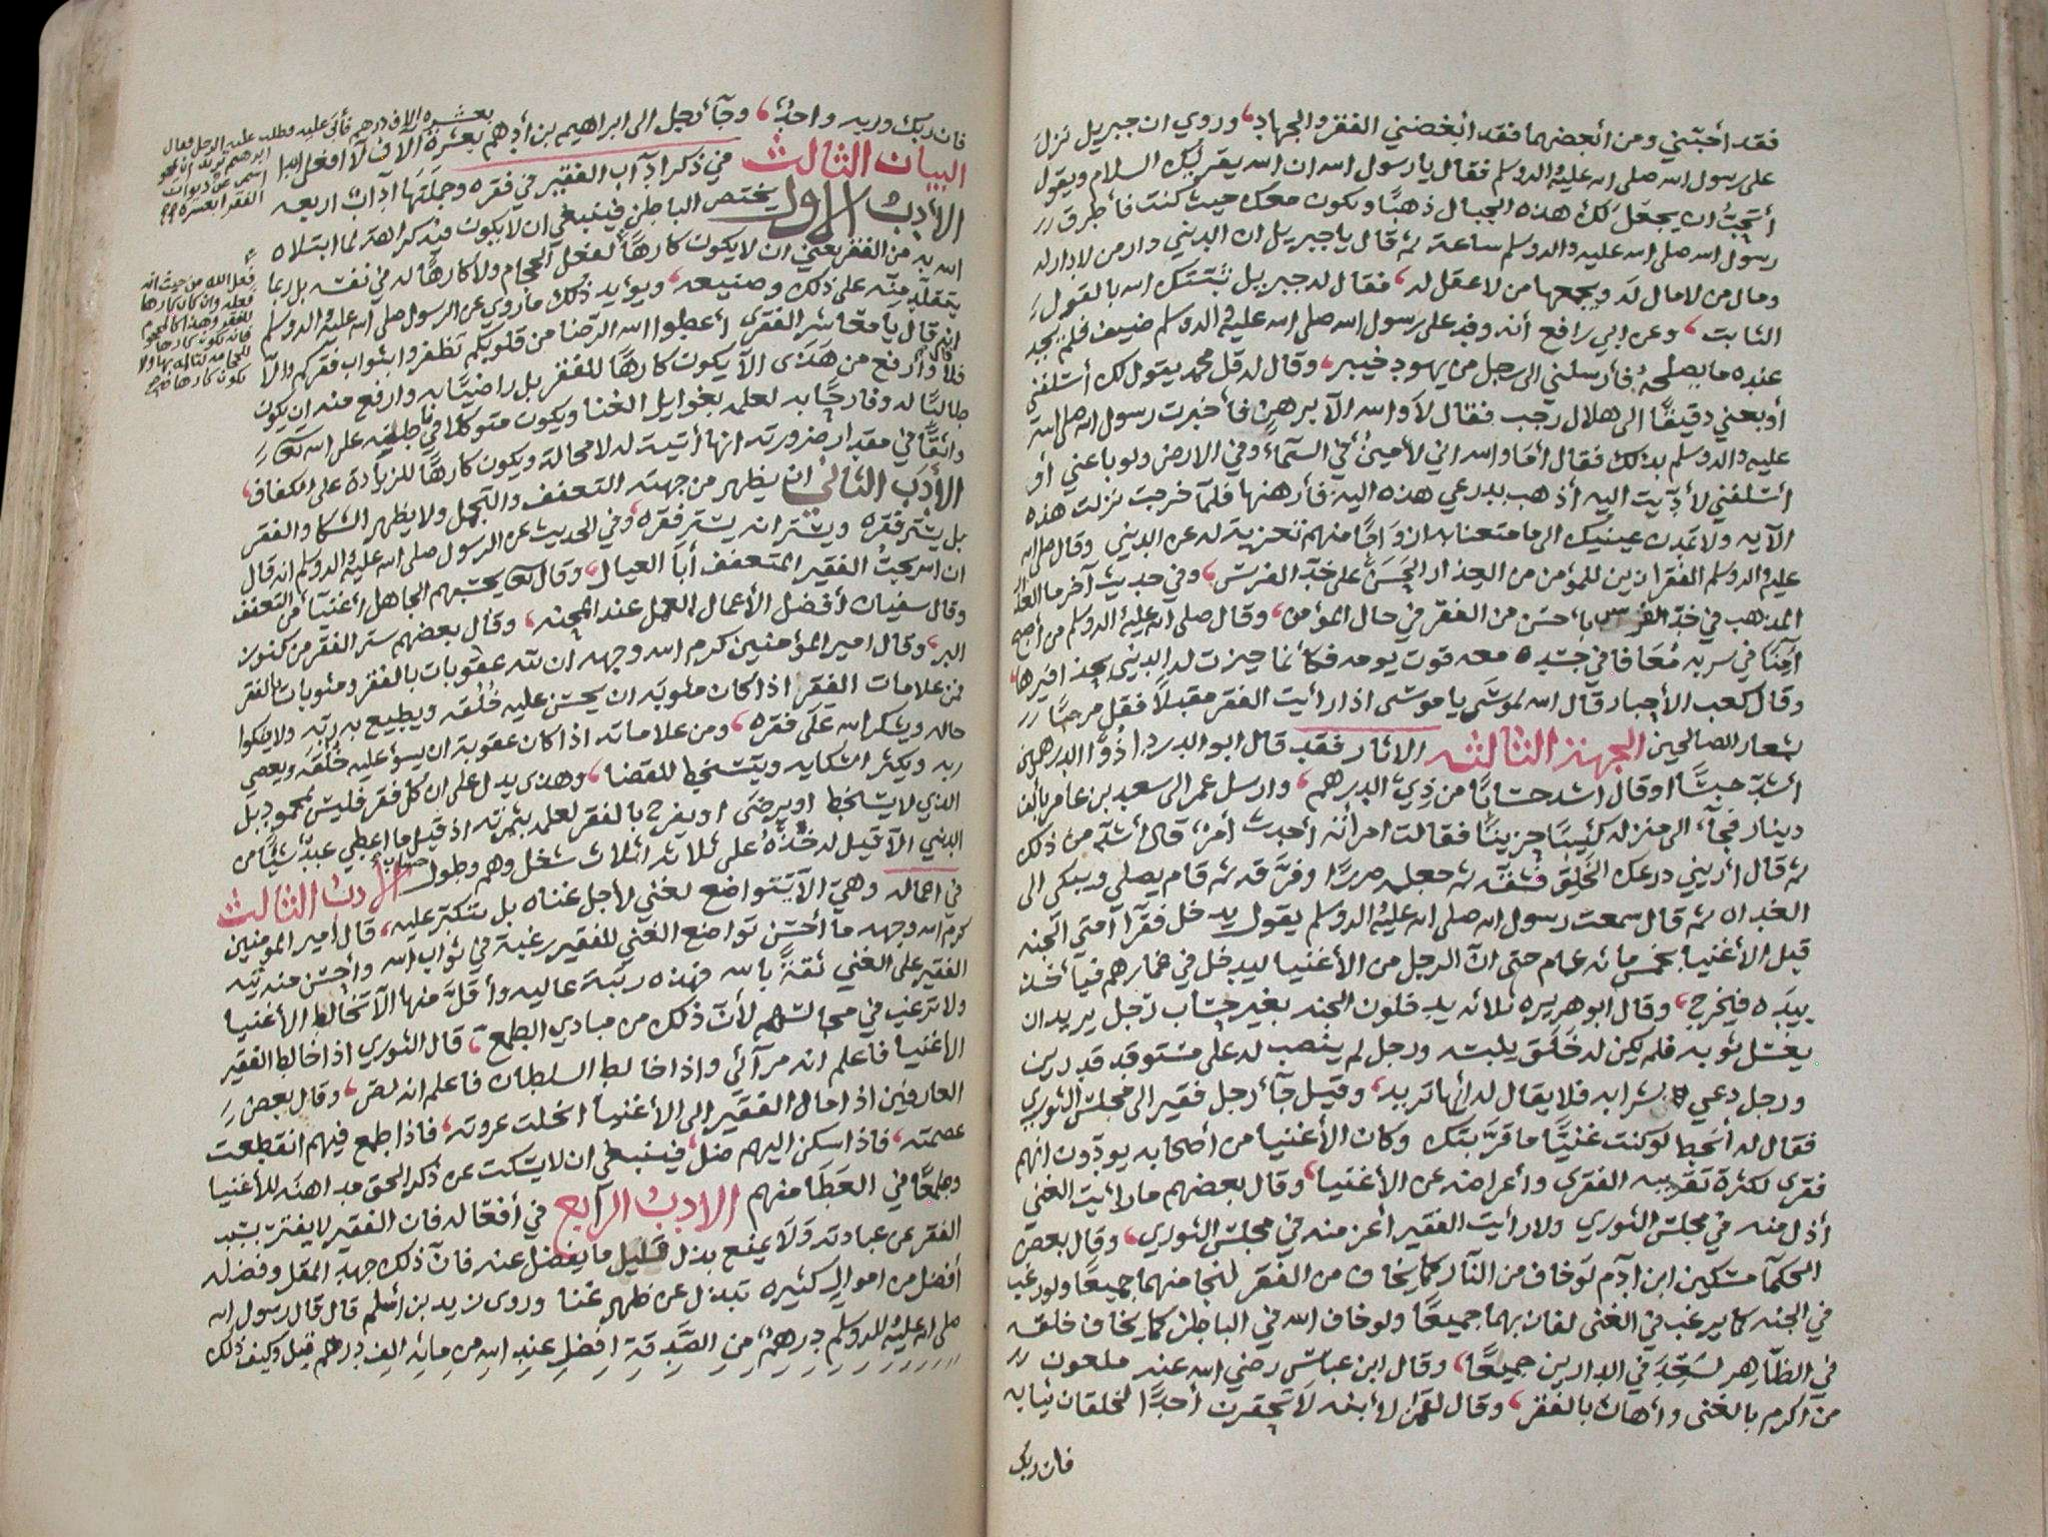 فقد أحبّني ومن أبغضهما فقد أبغضني الفقر والجهاد، وروي ان جبريل نزل
على رسول اسه صلى اسه عليه واله وسلم فقال يا رسول اسه ان اسه يقرئك السلام ويقول
أتحبّ ان يجعل لك هذه الجبال ذهبًا وتكون معك حيث كنت فأطرق
رسول اسه صلى اسه عليه واله وسلم ساعة ثم قال يا جبريل ان الدنيى دار من لا دار له
ومال من لا مال له ويجمعها من لا عقل له، فقال له جبريل ثبتك اسه بالقول
الثابت، وعن ابي رافع أنه ورد على رسول اسه صلى اسه عليه واله وسلم ضيف فلم يجد
عنده ما يصلحه فأرسلني الى رجل من يهود خيبر، وقال له قل محمد يقول لك أسلفني
أو بعني دقيقًا الى هلال رجب فقال لا واسه الا برهن فأخبرت رسول اسه صلى اسه
عليه واله وسلم بذلك فقال أما واسه اني لأمينٌ في السمآء وفي الارض ولو باعني أو
أسلفني لأدّيت اليه أذهب بدرعي هذه اليه فأرهنها فلمّا خرجت نزلت هذه
الآيه ولا تمدن عينيك الى ما متعنا به ازواجًا منهم تعزية له عن الدنيى وقال صلى اسه
عليه واله وسلم الفقر ازين للمؤمن من العذار الحسن على خدّ الفرس، وفي حديث آخر ما العذار
المذهب في خدّ الفرس بأحسن من الفقر في حال المؤمن، وقال صلى اسه عليه واله وسلم من أصبح
آمنًا في سربه معافا في جسده معه قوت يومه فكأنما حيزت له الدنيى بحذافيرها،
وقال كعب الأحبار قال اسه لموسى يا موسى اذا رأيت الفقر مقبلاً فقل مرحبًا
بشعار الصالحين الجهة الثالثه الاثار فقد قال ابو الدردا ذوا الدرهمين
أشدّ حبسًا او قال اشد حسابًا من ذي الدرهم، وارسل عمر الى سعيد بن عامر بألف
دينار فجآء الى منزله كئيبًا حزينًا فقالت امرأته أحدث أمرٌ، قال أشدّ من ذلك
ثم قال أريني درعك الخلق فشقّه ثم جعله صررًا وفرّقه ثم قام يصلي ويبكي الى
الغداه ثم قال سمعت رسول اسه صلى اسه عليه واله وسلم يقول يدخل فقرآء أمتي الجنه
قبل الأغنيا بخمس مائه عام حتى انّ الرجل من الأغنيا ليدخل في غمارهم فيأخذ
بيده فيخرج، وقال ابو هريره ثلاثه يدخلون الجنه بغير حساب رجل يريد ان
يغسل ثوبه فلم يكن له خلق يلبسه ورجل لم ينصب له على مستوقد قدرين
ورجل دعي بشرابه فلا يقال له أيها تريد، وقيل جآء رجل فقير الى مجلس الثوري
فقال له أتخط لو كنت غنيًّا ما قرّبتك وكان الأغنيا من أصحابه يودّون انهم
فقرى لكثرة تقريبه الفقرى وأعراضه عن الأغنيا، وقال بعضهم ما رأيت الغني
أذل منه في مجلس الثوري ولا رأيت الفقير أعز منه في مجلس الثوري، وقال بعض
الحكمآ مسكين ابن ادم لو خاف من النار كما يخاف من الفقر لنجا منهما جميعًا ولو رغب
في الجنه كما يرغب في الغنى لفاز بهما جميعًا ولو خاف الله في الباطن كما يخاف خلقه
في الظاهر لسعد في الدارين جميعًا، وقال ابن عباس رضي اسه عنه ملعون
من أكرم بالغنى وأهان بالفقر، وقال لقمن لأبنه لا تحقرن أحدًا لخلقان ثيابه
فان ربك
فان ربك وربه واحدٌ، وجآء رجل الى ابراهيم بن أدهم بعشرة آلاف لا افعل ابدا
البيان الثالث في ذكر آداب الفقير في فقره وجملتها آداب اربعه
الأدب الاول يختص الباطن فينبغي ان لا يكون فيه كراهة لما ابتلاه
اسه به من الفقر يعني ان لا يكون كارهًا لفعل الحجام ولا كارهًا له في نفسه بل ربما
يتقلّد منّه على ذلك وصنيعه، ويؤيد ذلك ما روي عن الرسول صلى اسه عليه واله وسلم
انه قال يا معاشر الفقرى أعطوا اسه الرّضا من قلوبكم تظفروا بثواب فقركم والّا
فلا، وأرفع من هذى الّا يكون كارهًا للفقر بل راضيًا به وارفع منه ان يكون
طالبًا له وفارحًا به لعلمه بغوايل الغنا ويكون متوكلا في باطنه على اسه تعالى
واثقًا في مقدار ضرورته انها أتيته له لا محالة ويكون كارهًا للزيادة على الكفاف،
الأدب الثاني ان يظهر من جهته التعفف والتجمل ولا يظهر الشكا والفقر
بل يستر فقره ويستر انه يستر فقره، وفي الحديث عن الرسول صلى اسه عليه واله وسلم انه قال
ان اسه يحبّ الفقير المتعفف أبا العيال، وقال تعالى يحسبهم الجاهل أغنيآء من التعفف
وقال سفيان أفضل الأعمال العمل عند المحنه، وقال بعضهم ستر الفقر من كنوز
البر، وقال امير المؤمنين كرم اسه وجهه ان لله عقوبات بالفقر ومثوبات بالفقر
فمن علامات الفقر اذا كان مثوبة ان يحسن عليه خلقه ويطيع به ربه ولا يشكوا
حاله ويشكر اسه على فقره، ومن علاماته اذا كان عقوبة ان يسؤ عليه خلقه ويعصي
ربه ويكثر الشكايه ويتسخط للقضا، وهذى يدل على ان كل فقر فليس بمحمود بل
الذي لا يتسخط او يرضى او يفرح بالفقر لعلمه بثمرته اذ قيل ما اعطي عبدٌ شيئًا من
الدنيى الّا قيل له خذه على ثلاثه اثلاث شغل وهم وطول حساب الادب الثالث
في اعماله وهي الّا يتواضع لغني لأجل غناه بل يتكبّر عليه، قال امير المومنين
كرم اسه وجهه ما أحسن تواضع الغني للفقير رغبة في ثواب اسه وأحسن منه تيه
الفقير على الغني ثقةً باسه فهذه رتبة عاليه وأقلّ منها الّا تخالط الأغنيا
ولا ترغب في مجالستهم لأنّ ذلك من مبادي الطمع، قال الثوري اذا خالط الفقير
الأغنيا فأعلم انه مرآئي واذا خالط السلطان فاعلم انه لص، وقال بعض
العارفين اذا مال الفقير الى الأغنيا انحلت عروته، فاذا طمع فيهم انقطعت
عصمته، فاذا سكن اليهم ضل، فينبغي ان لا يسكت عن ذكر الحق مداهنة للأغنيا
وطمعًا في العطا منهم الادب الرابع في أفعاله فان الفقير لا يفتر بسبب
الفقر عن عبادته ولا يمنع بذل قليل ما يفضل عنه فانّ ذلك جهد المقل وفضله
أفضل من اموال كثيره تبذل عن ظهر غنا وروى زيد بن أسلم قال قال رسول اسه
صلى اسه عليه واله وسلم درهمٌ من الصّدقة افضل عند اسه من مائه الف درهم قيل وكيف ذلك
بعشره آلاف درهم فأبى عليه وطلب عليه الرجل فقال
ابراهيم تريد ان تمحو
اسمي عن ديوان
الفقرا بعشره
فعل الله من حيث انه
فعله وان كان كارها
للفقر وهذا كالمحجوم
فانه يكون كارها
للحجامه لتألمه بها ولا
يكون كارها